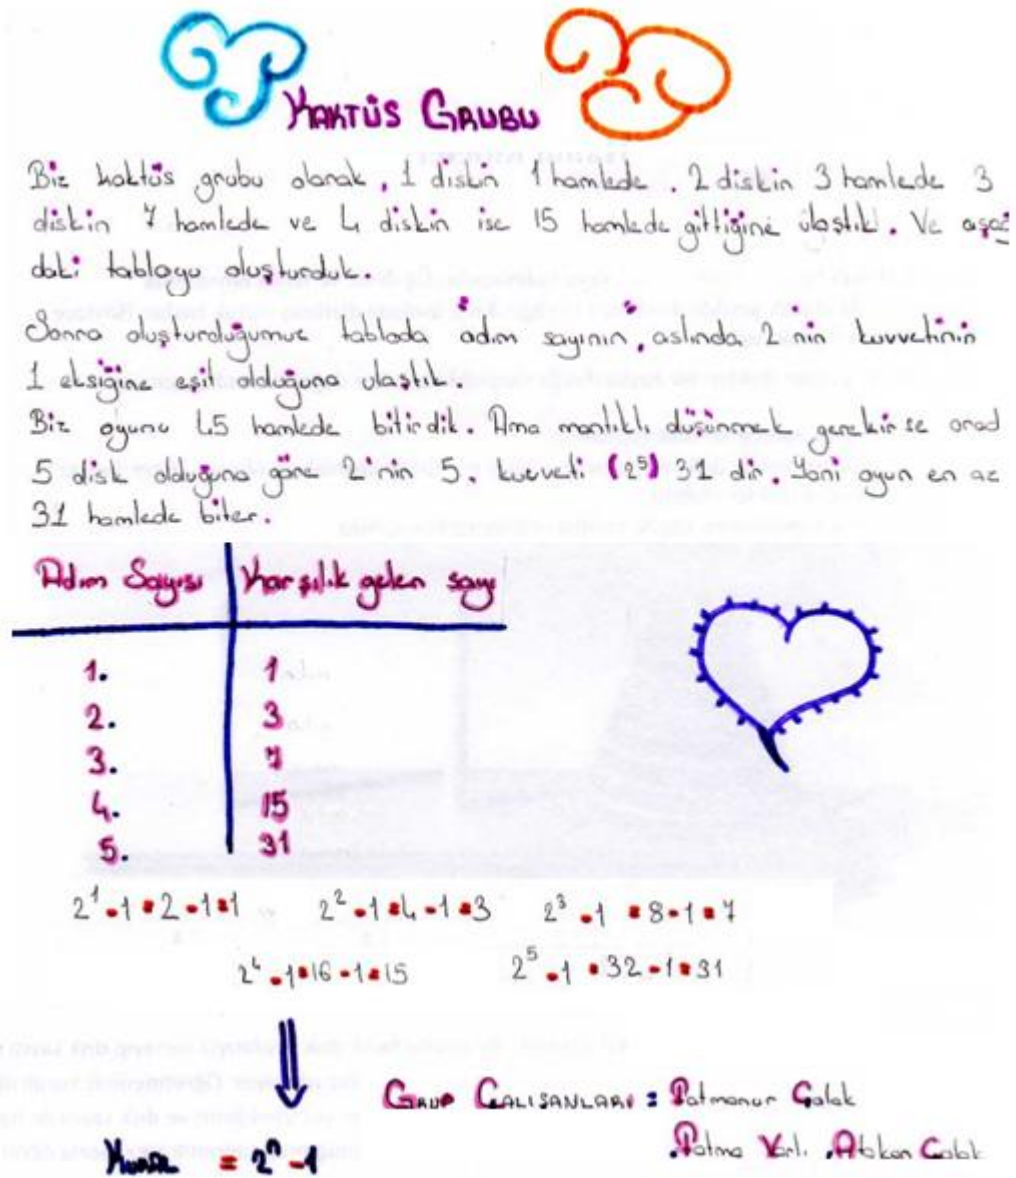 KAKTÜS GRUBU
Biz kaktüs grubu olarak, 1 diskin 1 hamlede, 2 diskin 3 hamlede 3
diskin 7 hamlede ve 4 diskin ise 15 hamlede gittiğine ulaştık. Ve aşağ
daki tabloyu oluşturduk.
Sonra oluşturduğumuz tabloda adım sayının, aslında 2 nin kuvvetinin
1 eksiğine eşit olduğuna ulaştık.
Biz oyunu 45 hamlede bitirdik. Ama mantıklı düşünmek gerekirse orad
5 disk olduğuna göre 2'nin 5. kuvveti (2⁵) 31 dir. Yani oyun en az
31 hamlede biter.
Adım Sayısı Karşılık gelen sayı
1. 1
2. 3
3. 7
4. 15
5. 31
2¹-1=2-1=1 2²-1=4-1=3 2³-1=8-1=7
2⁴-1=16-1=15 2⁵-1=32-1=31
Kural = 2ⁿ-1
GRUP ÇALIŞANLARI: Fatmanur Çolak
Fatma Varlı, Atakan Çolak